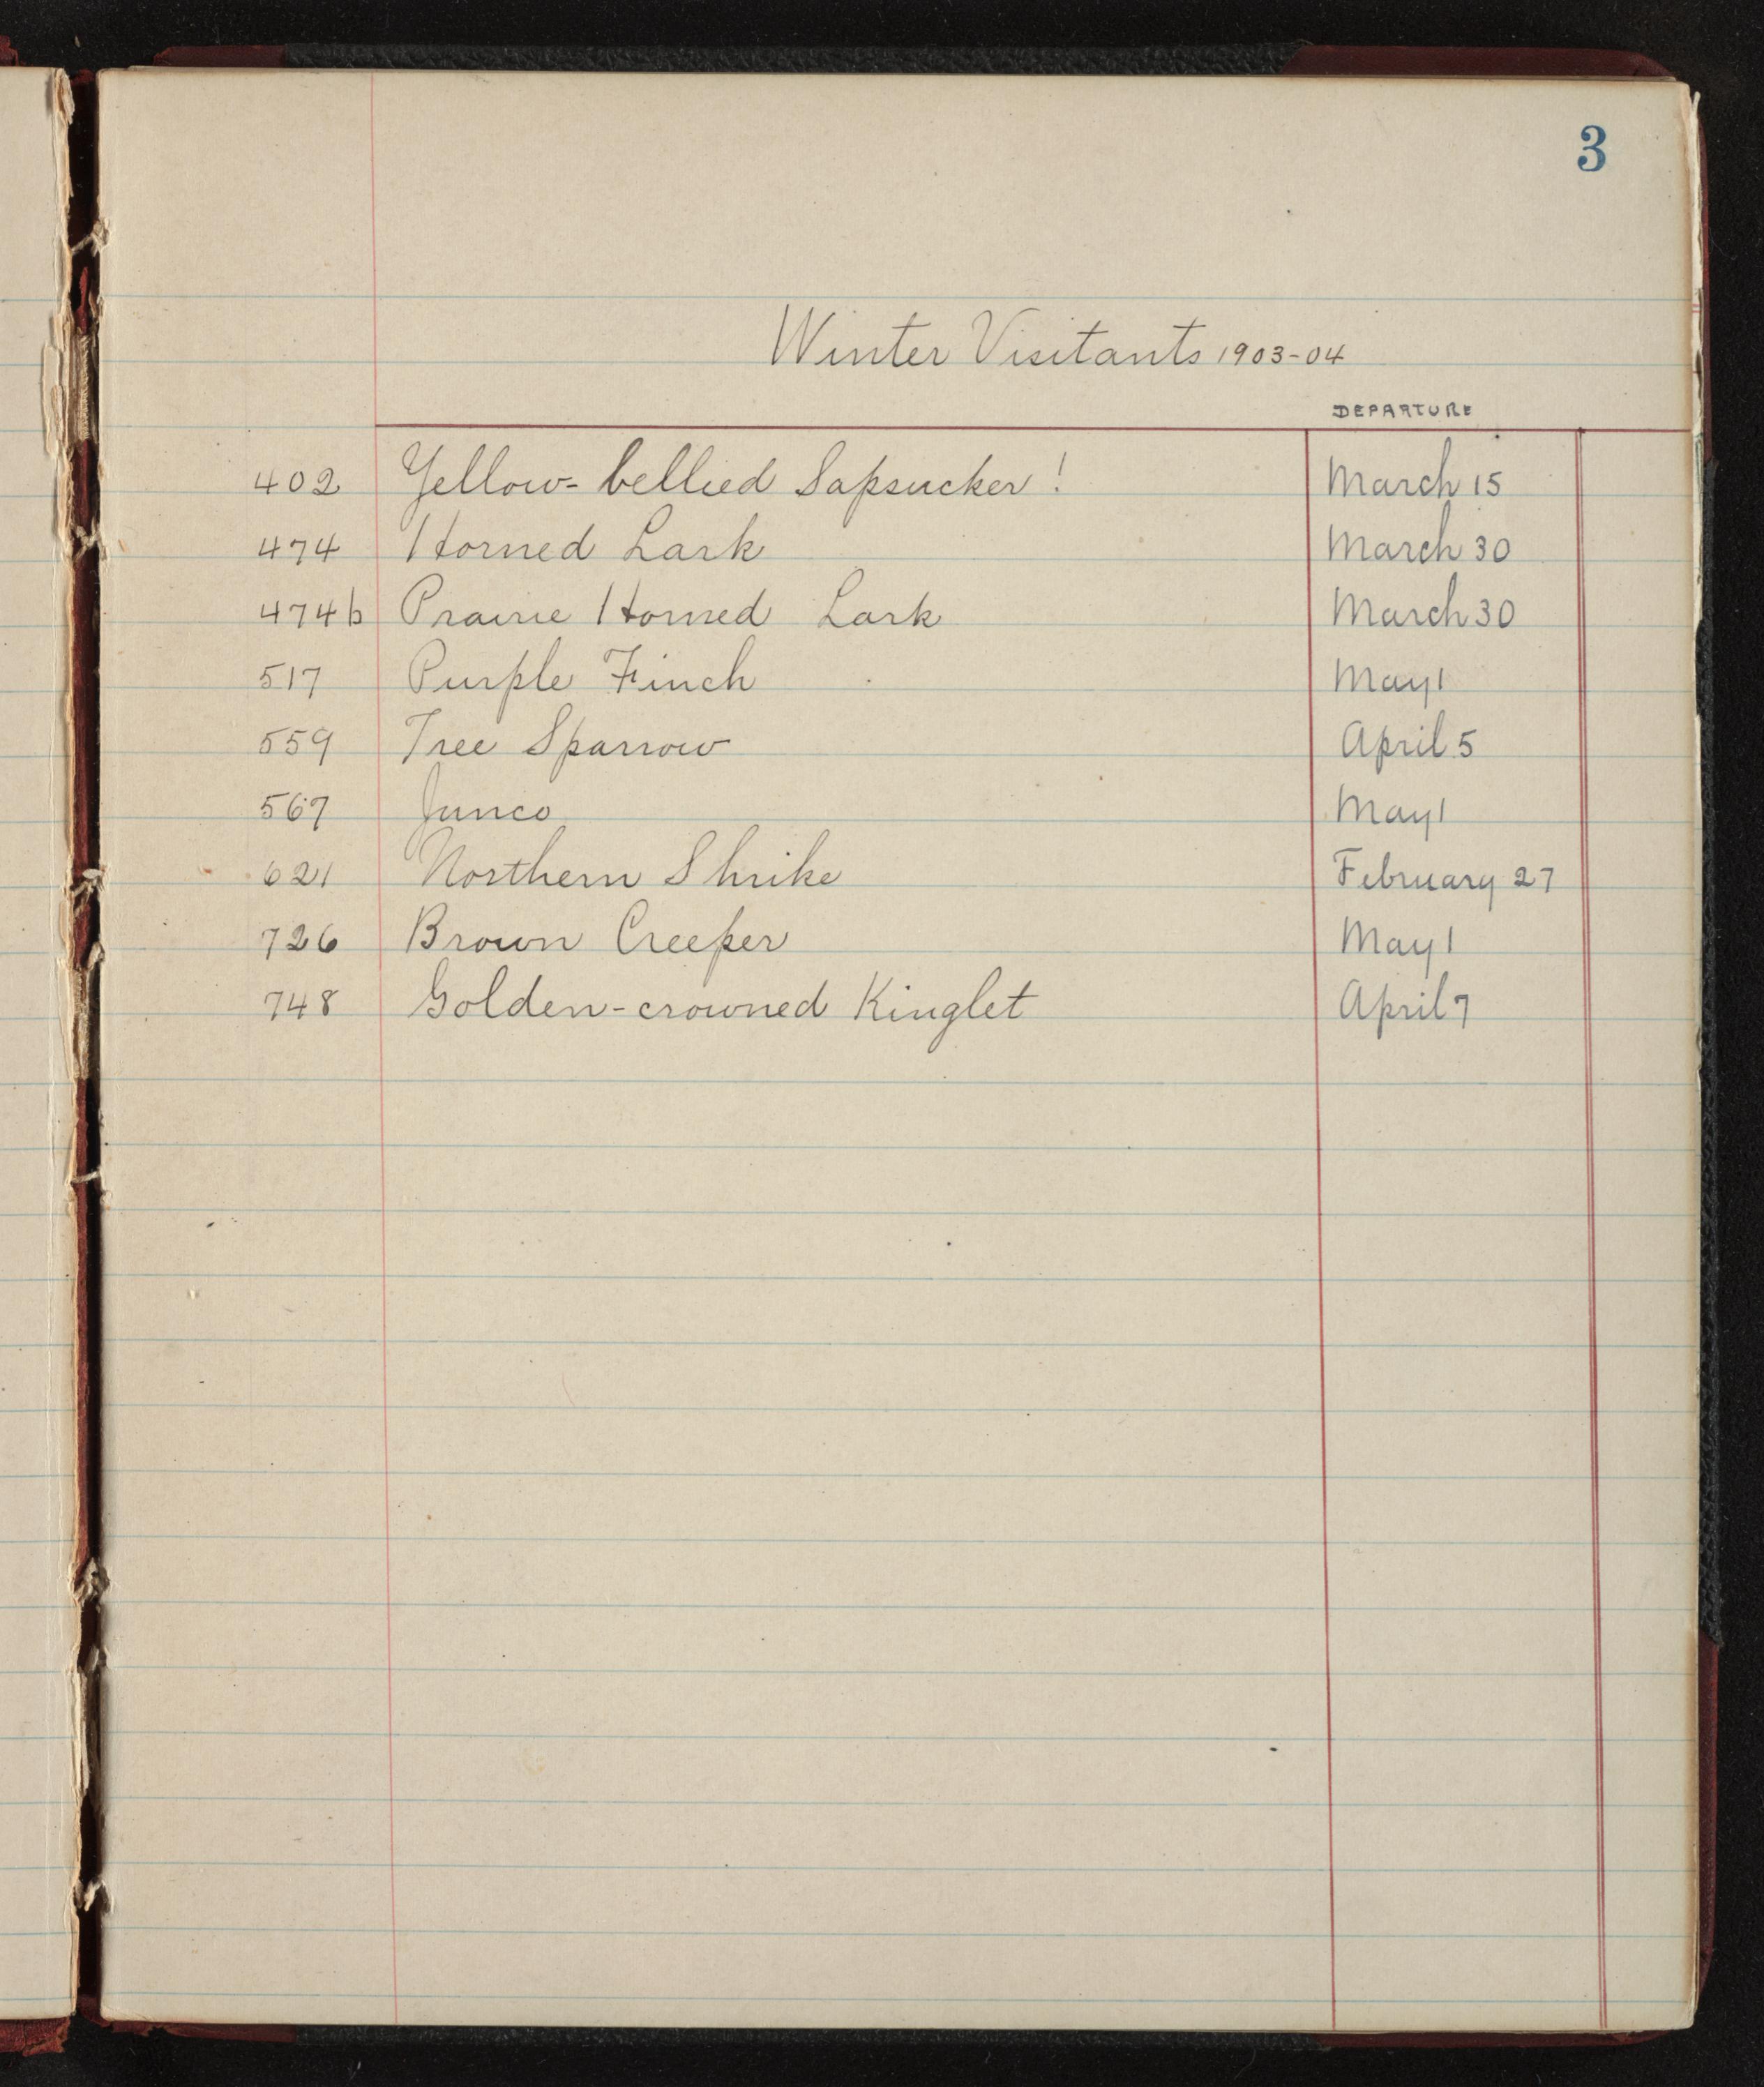 3
Winter Visitants 1903-04
DEPARTURE
402 Yellow-bellied Sapsucker! March 15
474 Horned Lark March 30
474b Prairie Horned Lark March 30
517 Purple Finch May 1
559 Tree Sparrow April 5
567 Junco May 1
621 Northern Shrike February 27
726 Brown Creeper May 1
748 Golden-crowned Kinglet April 7